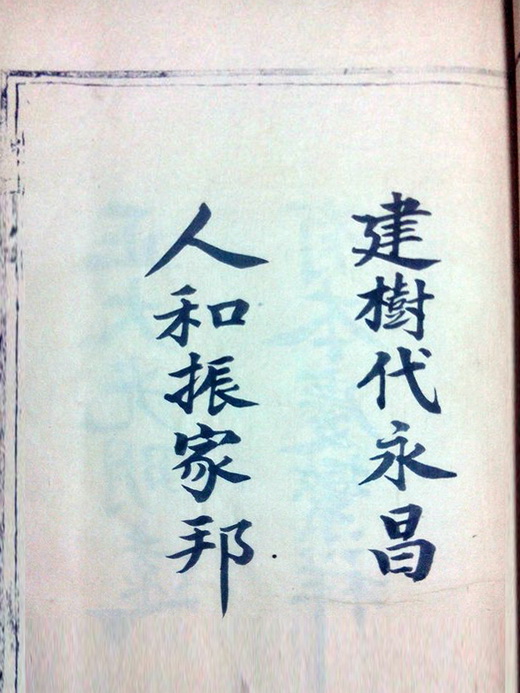 建樹代永昌
人和振家邦